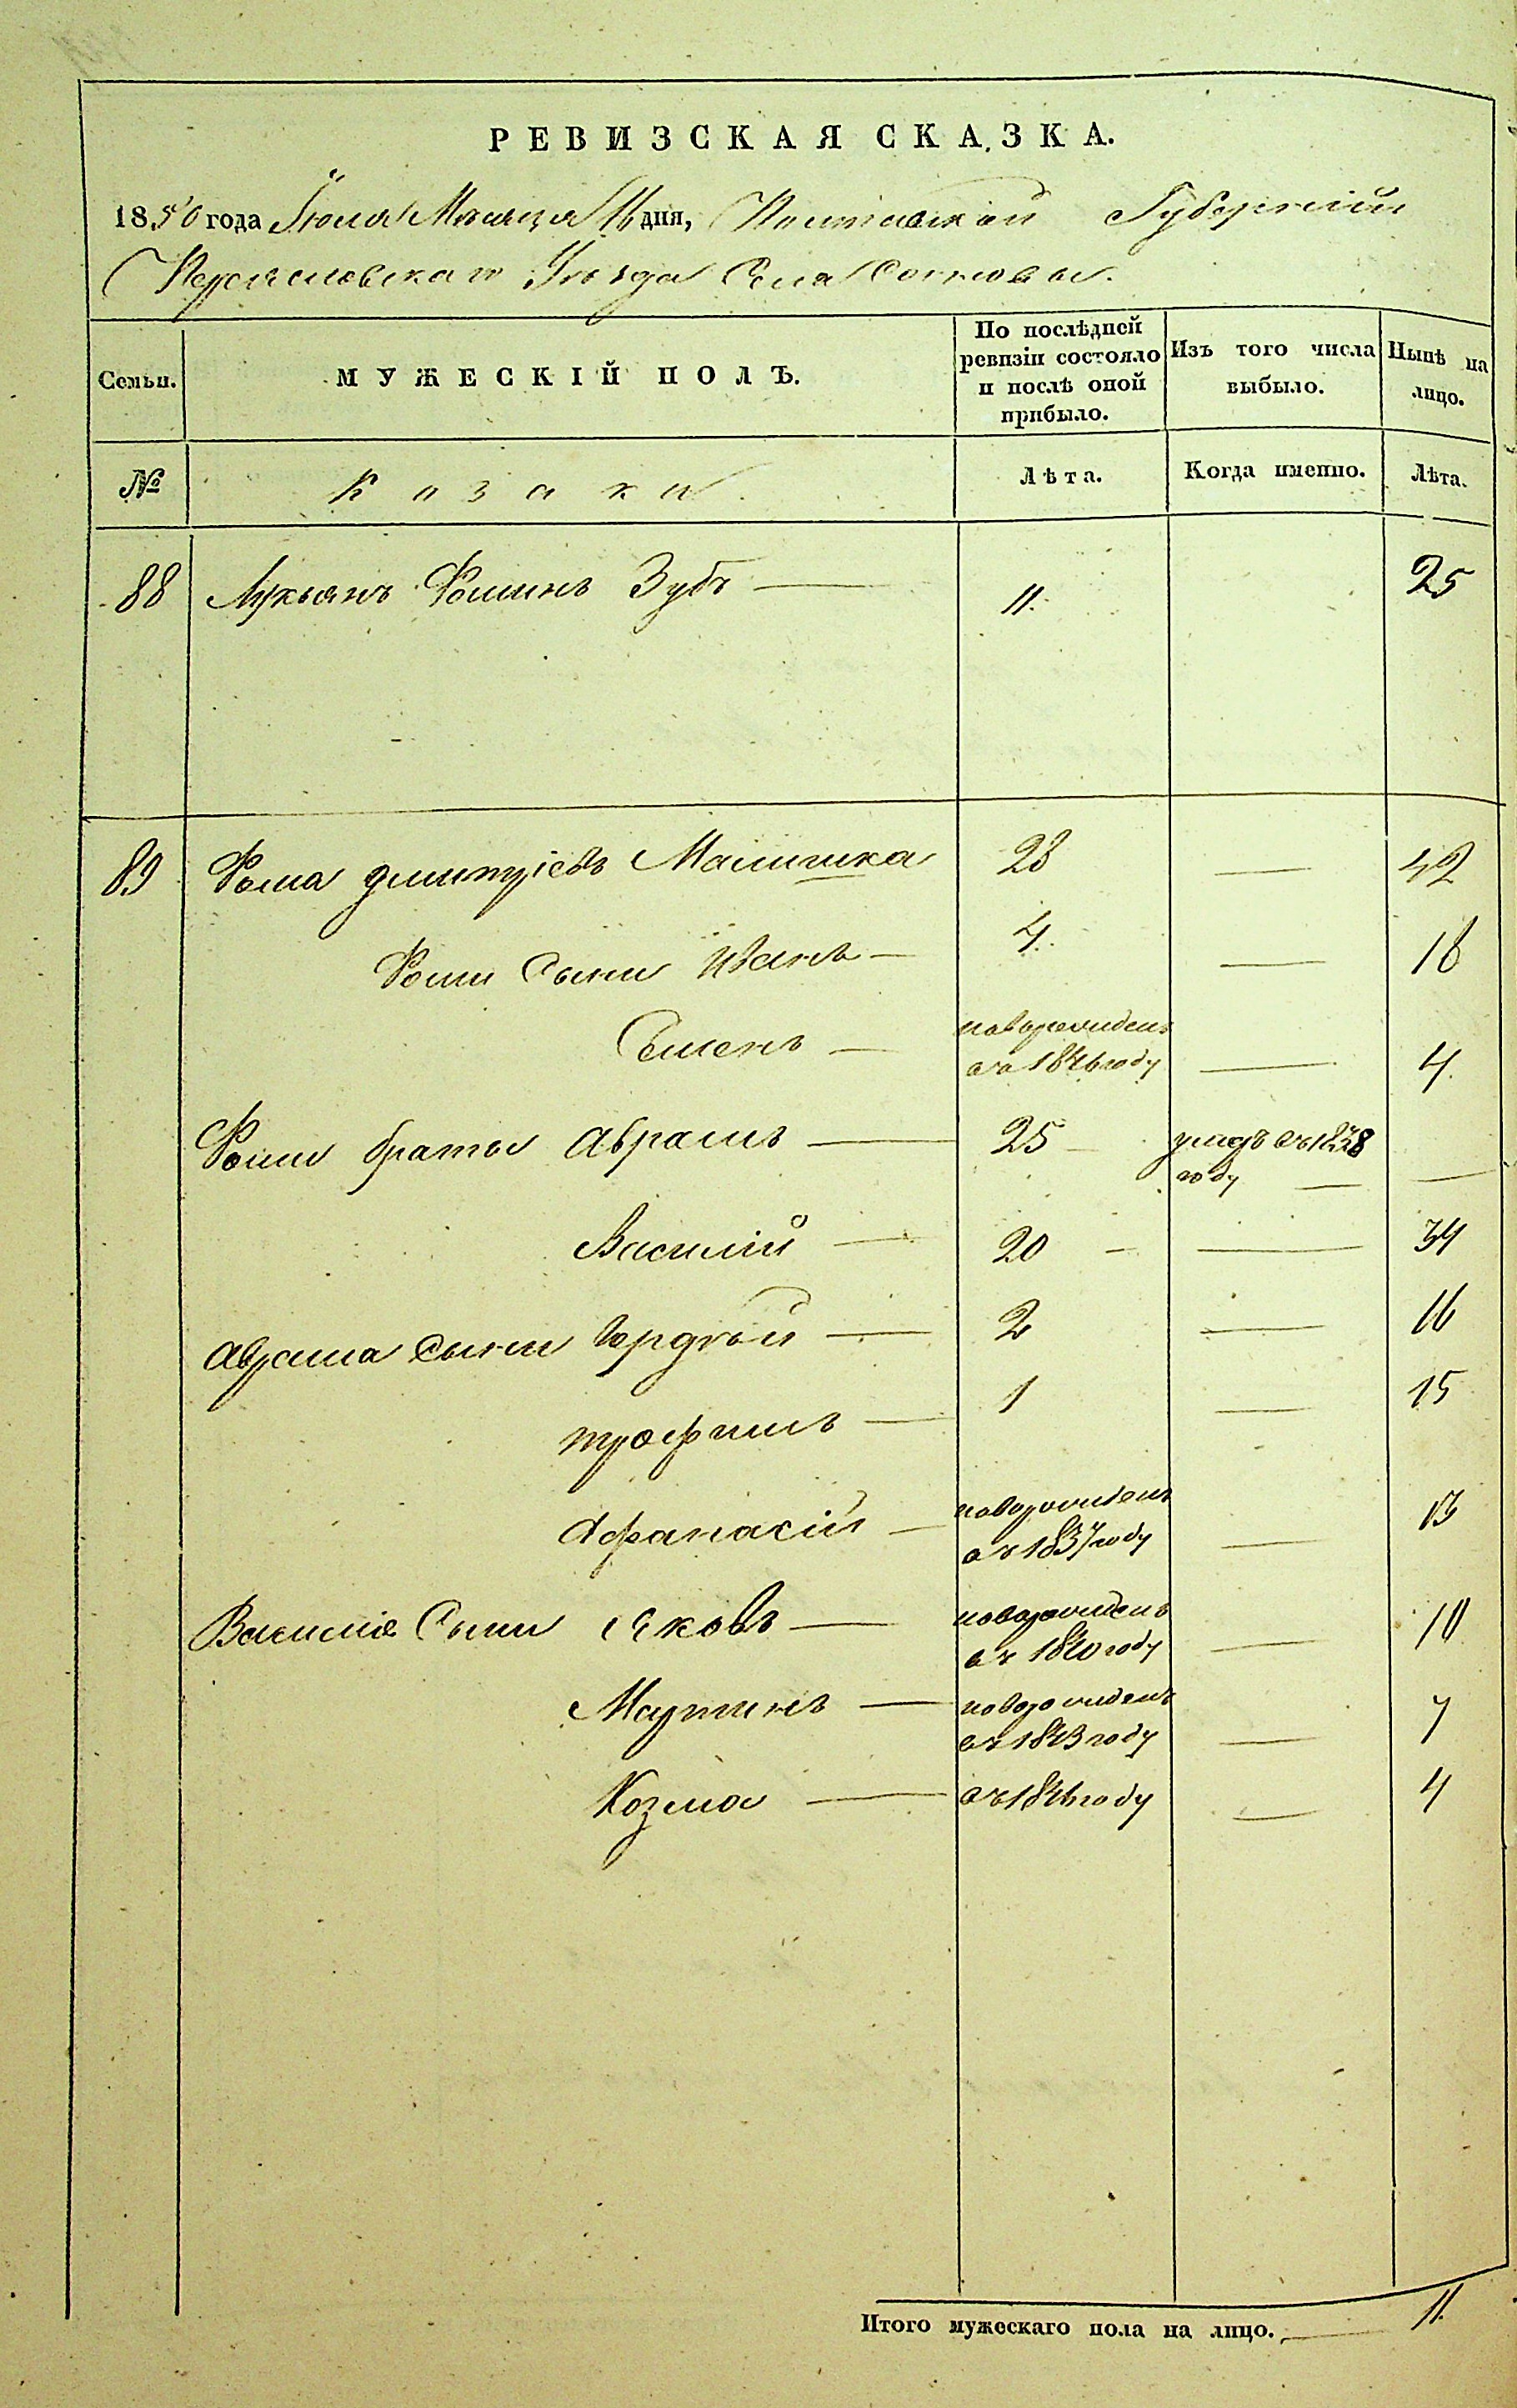 РЕВИЗСКАЯ СКАЗКА.
1850 года Іюля Месяца 16 дня, Полтавской Губерніи
Переяславскаго Уезда Села Сосновы.
Семьи. МУЖЕСКІЙ ПОЛЪ. По послѣдней ревизіи состояло и послѣ оной прибыло. Изъ того числа выбыло. Нынѣ на лицо.
№ Козаки Лѣта. Когда именно. Лѣта.
88 Лукьянъ Фоминъ Зубъ — 11. 25
89 Фома Дмитріевъ Малишка 28 — 42
Фоми Сыни Иванъ — 4. — 18
Семенъ — новорожденъ въ 1846 году — 4.
Фоми братья Аврамъ — 25 — умеръ въ 1838 году —
Василій — 20 — — 34
Аврама Сыни Гордѣй — 2 — 16
Трофимъ — 1 — 15
Афанасій — новорожденъ въ 1837 году — 13
Василія Сыни Яковъ — новорожденъ въ 1840 году — 10
Мартинъ — новорожденъ въ 1843 году — 7
Козма — въ 1846 году — 4
Итого мужескаго пола на лицо. — 11.